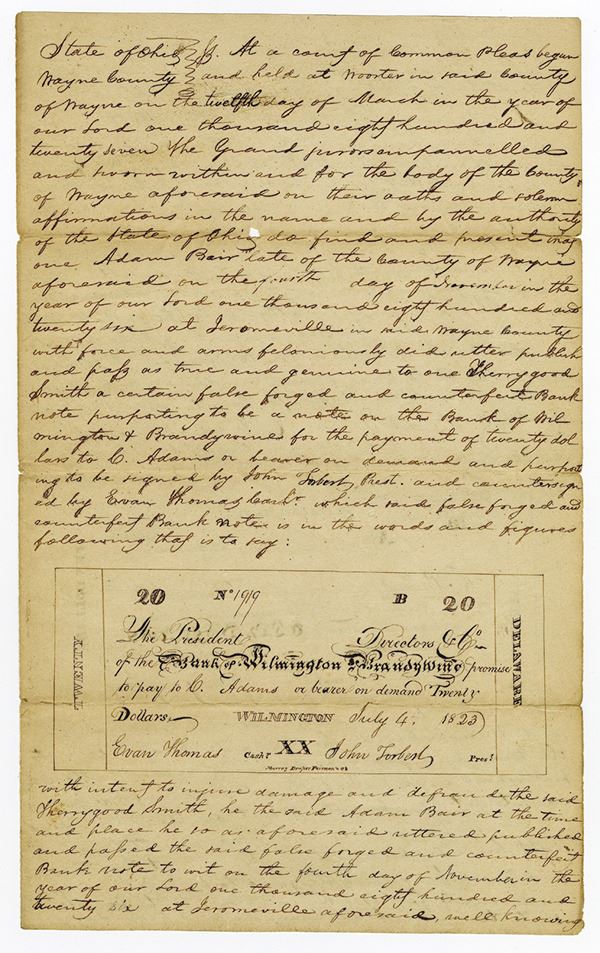 State of Ohio ss. At a court of Common Pleas began
Wayne County and held at Wooster in said County
of Wayne on the twelfth day of March in the year of
our Lord one thousand eight hundred and
twenty seven The Grand jurors empannelled
and sworn within and for the body of the County
of Wayne aforesaid on their oaths and solemn
affirmations in the name and by the authority
of the State of Ohio do find and present that
one Adam Bair late of the County of Wayne
aforesaid on the fourth day of November in the
year of our Lord one thousand eight hundred and
twenty six at Jeromeville in said Wayne County
with force and arms feloniously did utter publish
and pass as true and genuine to one Therrygood
Smith a certain false forged and counterfeit Bank
note purporting to be a note on the Bank of Wil
mington & Brandywine for the payment of twenty dol
lars to C. Adams or bearer on demand and purport
ing to be signed by John Torbert, Prest. and countersign
ed by Evan Thomas, Cashr. which said false forged and
counterfeit Bank note is in the words and figures
following that is to say:
20 No 1919 B 20
TWENTY
DELAWARE
The President Directors & Co.
of the Bank of Wilmington & Brandywine promise
to pay to C. Adams or bearer on demand Twenty
Dollars. WILMINGTON July 4. 1823
Evan Thomas Cashr XX John Torbert Prest
Murray Draper Fairman & Co
with intent to injure damage and defraud the said
Therrygood Smith, he the said Adam Bair at the time
and place he so as aforesaid uttered published
and passed the said false forged and counterfeit
Bank note to wit on the fourth day of November in the
year of our Lord one thousand eight hundred and
twenty six at Jeromeville aforesaid, well knowing